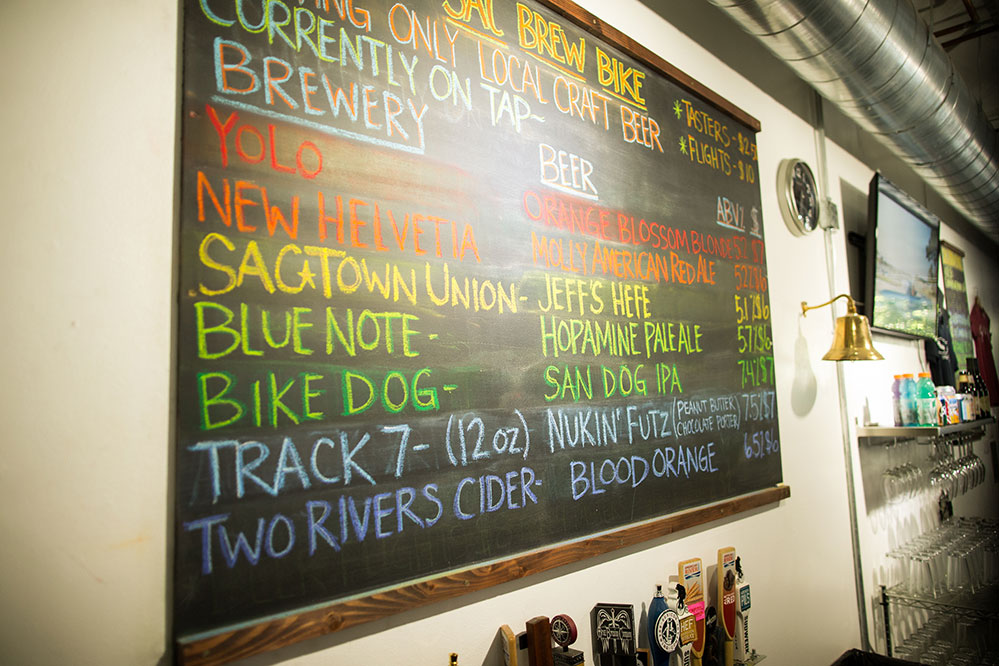 SAC BREW BIKE
ONLY LOCAL CRAFT BEER
CURRENTLY ON TAP~
* TASTERS - $2.50
* FLIGHTS - $10
BREWERY BEER ABV% $
YOLO ORANGE BLOSSOM BLONDE
NEW HELVETIA MOLLY AMERICAN RED ALE 5.2% $6
SAC★TOWN UNION- JEFF'S HEFE 5.1% $6
BLUE NOTE- HOPAMINE PALE ALE 5.7% $6
BIKE DOG- SAN DOG IPA 7.4% $7
TRACK 7- (12oz) NUKIN' FUTZ (PEANUT BUTTER CHOCOLATE PORTER) 7.5% $7
TWO RIVERS CIDER- BLOOD ORANGE 6.5% $6
HEF